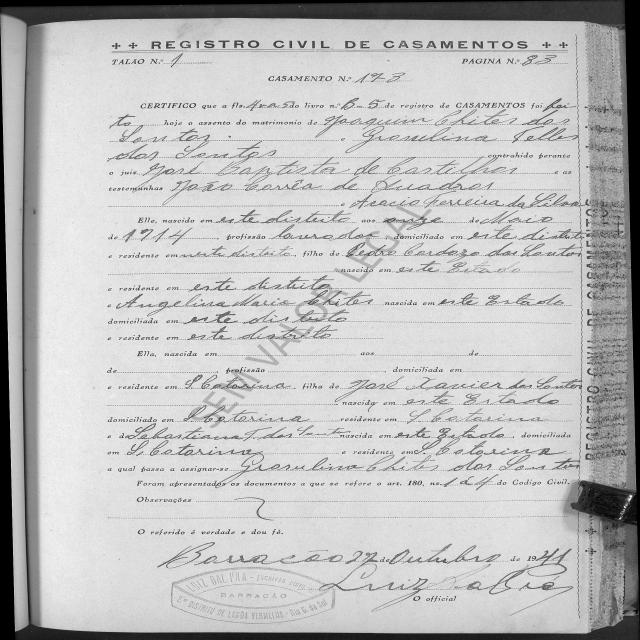 REGISTRO CIVIL DE CASAMENTOS
TALÃO N.º 1 PAGINA N.º 83
CASAMENTO N.º 173
CERTIFICO que a fls. 4 vs do livro n.º B-5 de registro de CASAMENTOS foi fei
to hoje o assento do matrimonio de Joaquim Chites dos
Santos. e Grasulina Telles
dos Santos contrahido perante
o juiz José Baptista de Castilhos e as
testemunhas João Corrêa de Quadros
e Acacio Ferreira da Silva
Elle, nascido em este distrito aos onze de Maio
de 1914 profissão lavrador, domiciliado em este distrito
e residente em neste distrito, filho de Pedro Cardozo dos Santos
nascido em este Estado
e residente em este distrito
e Angelina Maria Chites nascida em este Estado
domiciliada em este distrito
e residente em este distrito
Ella, nascida em aos de
de , profissão , domiciliada em
e residente em S. Catarina, filha de José Xavier dos Santos
nascido em este Estado
domiciliado em S. Catarina residente em S. Catarina
e de Sebastiana dos Santos nascida em este Estado, domiciliada
em S. Catarina e residente em S. Catarina
a qual passa a assignar-se Grasulina Chites dos Santos
Foram apresentados os documentos a que se refere o art. 180, ns. 1 a 4 do Codigo Civil.
Observações
O referido é verdade e dou fé.
Barracão 27 de Outubro de 1941
Luiz Dal Prá
O official
LUIZ DAL PRÁ
BARRACÃO
2º DISTRITO DE LAGÔA VERMELHA - Rio G. do Sul
SEM VALOR LEGAL
REGISTRO CIVIL DE CASAMENTOS